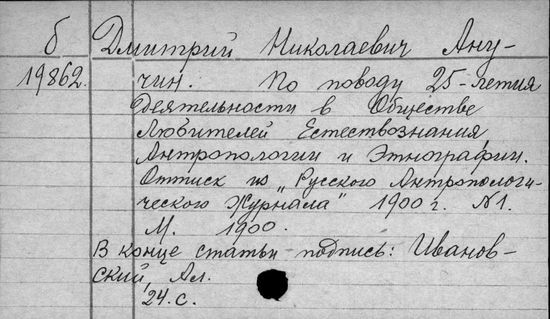 б Дмитрий Николаевич Ану-
19862. чин. По поводу 25-летия
деятельности в Обществе
Любителей Естествознания
Антропологии и Этнографии.
Оттиск из „Русского Антропологи-
ческого Журнала" 1900 г. N1.
М. 1900.
В конце статьи подпись: Иванов-
ский, Ал.
24 с.